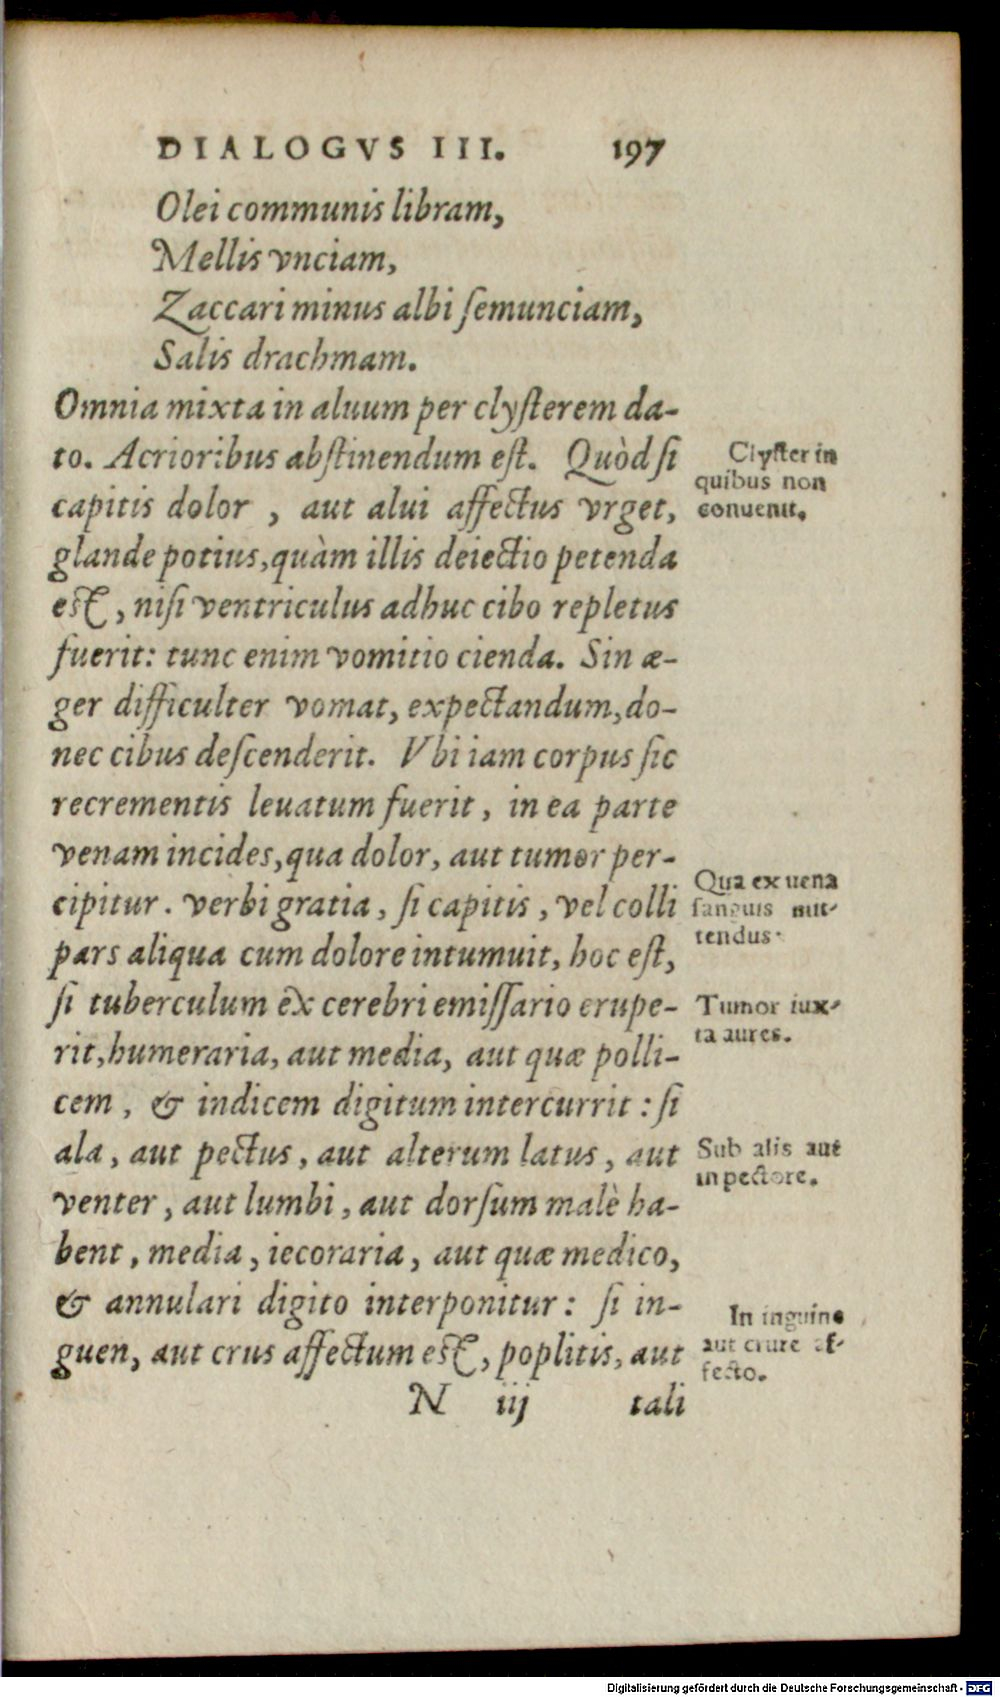 DIALOGVS III. 197
Olei communis libram,
Mellis vnciam,
Zaccari minus albi ſemunciam,
Salis drachmam.
Omnia mixta in aluum per clyſterem da-
to. Acrioribus abſtinendum eſt. Quòd ſi
capitis dolor , aut alui affectus vrget,
glande potius, quàm illis deiectio petenda
eſt, niſi ventriculus adhuc cibo repletus
fuerit: tunc enim vomitio cienda. Sin æ-
ger difficulter vomat, expectandum, do-
nec cibus deſcenderit. Vbi iam corpus ſic
recrementis leuatum fuerit, in ea parte
venam incides, qua dolor, aut tumor per-
cipitur. verbi gratia, ſi capitis, vel colli
pars aliqua cum dolore intumuit, hoc eſt,
ſi tuberculum ex cerebri emiſſario erupe-
rit, humeraria, aut media, aut quæ polli-
cem, & indicem digitum intercurrit: ſi
ala, aut pectus, aut alterum latus, aut
venter, aut lumbi, aut dorſum malè ha-
bent, media, iecoraria, aut quæ medico,
& annulari digito interponitur: ſi in-
guen, aut crus affectum eſt, poplitis, aut
N iij tali
Clyſter in
quibus non
conuenit.
Qua ex uena
ſanguis mit-
tendus.
Tumor iux-
ta aures.
Sub alis aut
in pectore.
In inguine
aut crure af-
fecto.
Digitalisierung gefördert durch die Deutsche Forschungsgemeinschaft - DFG